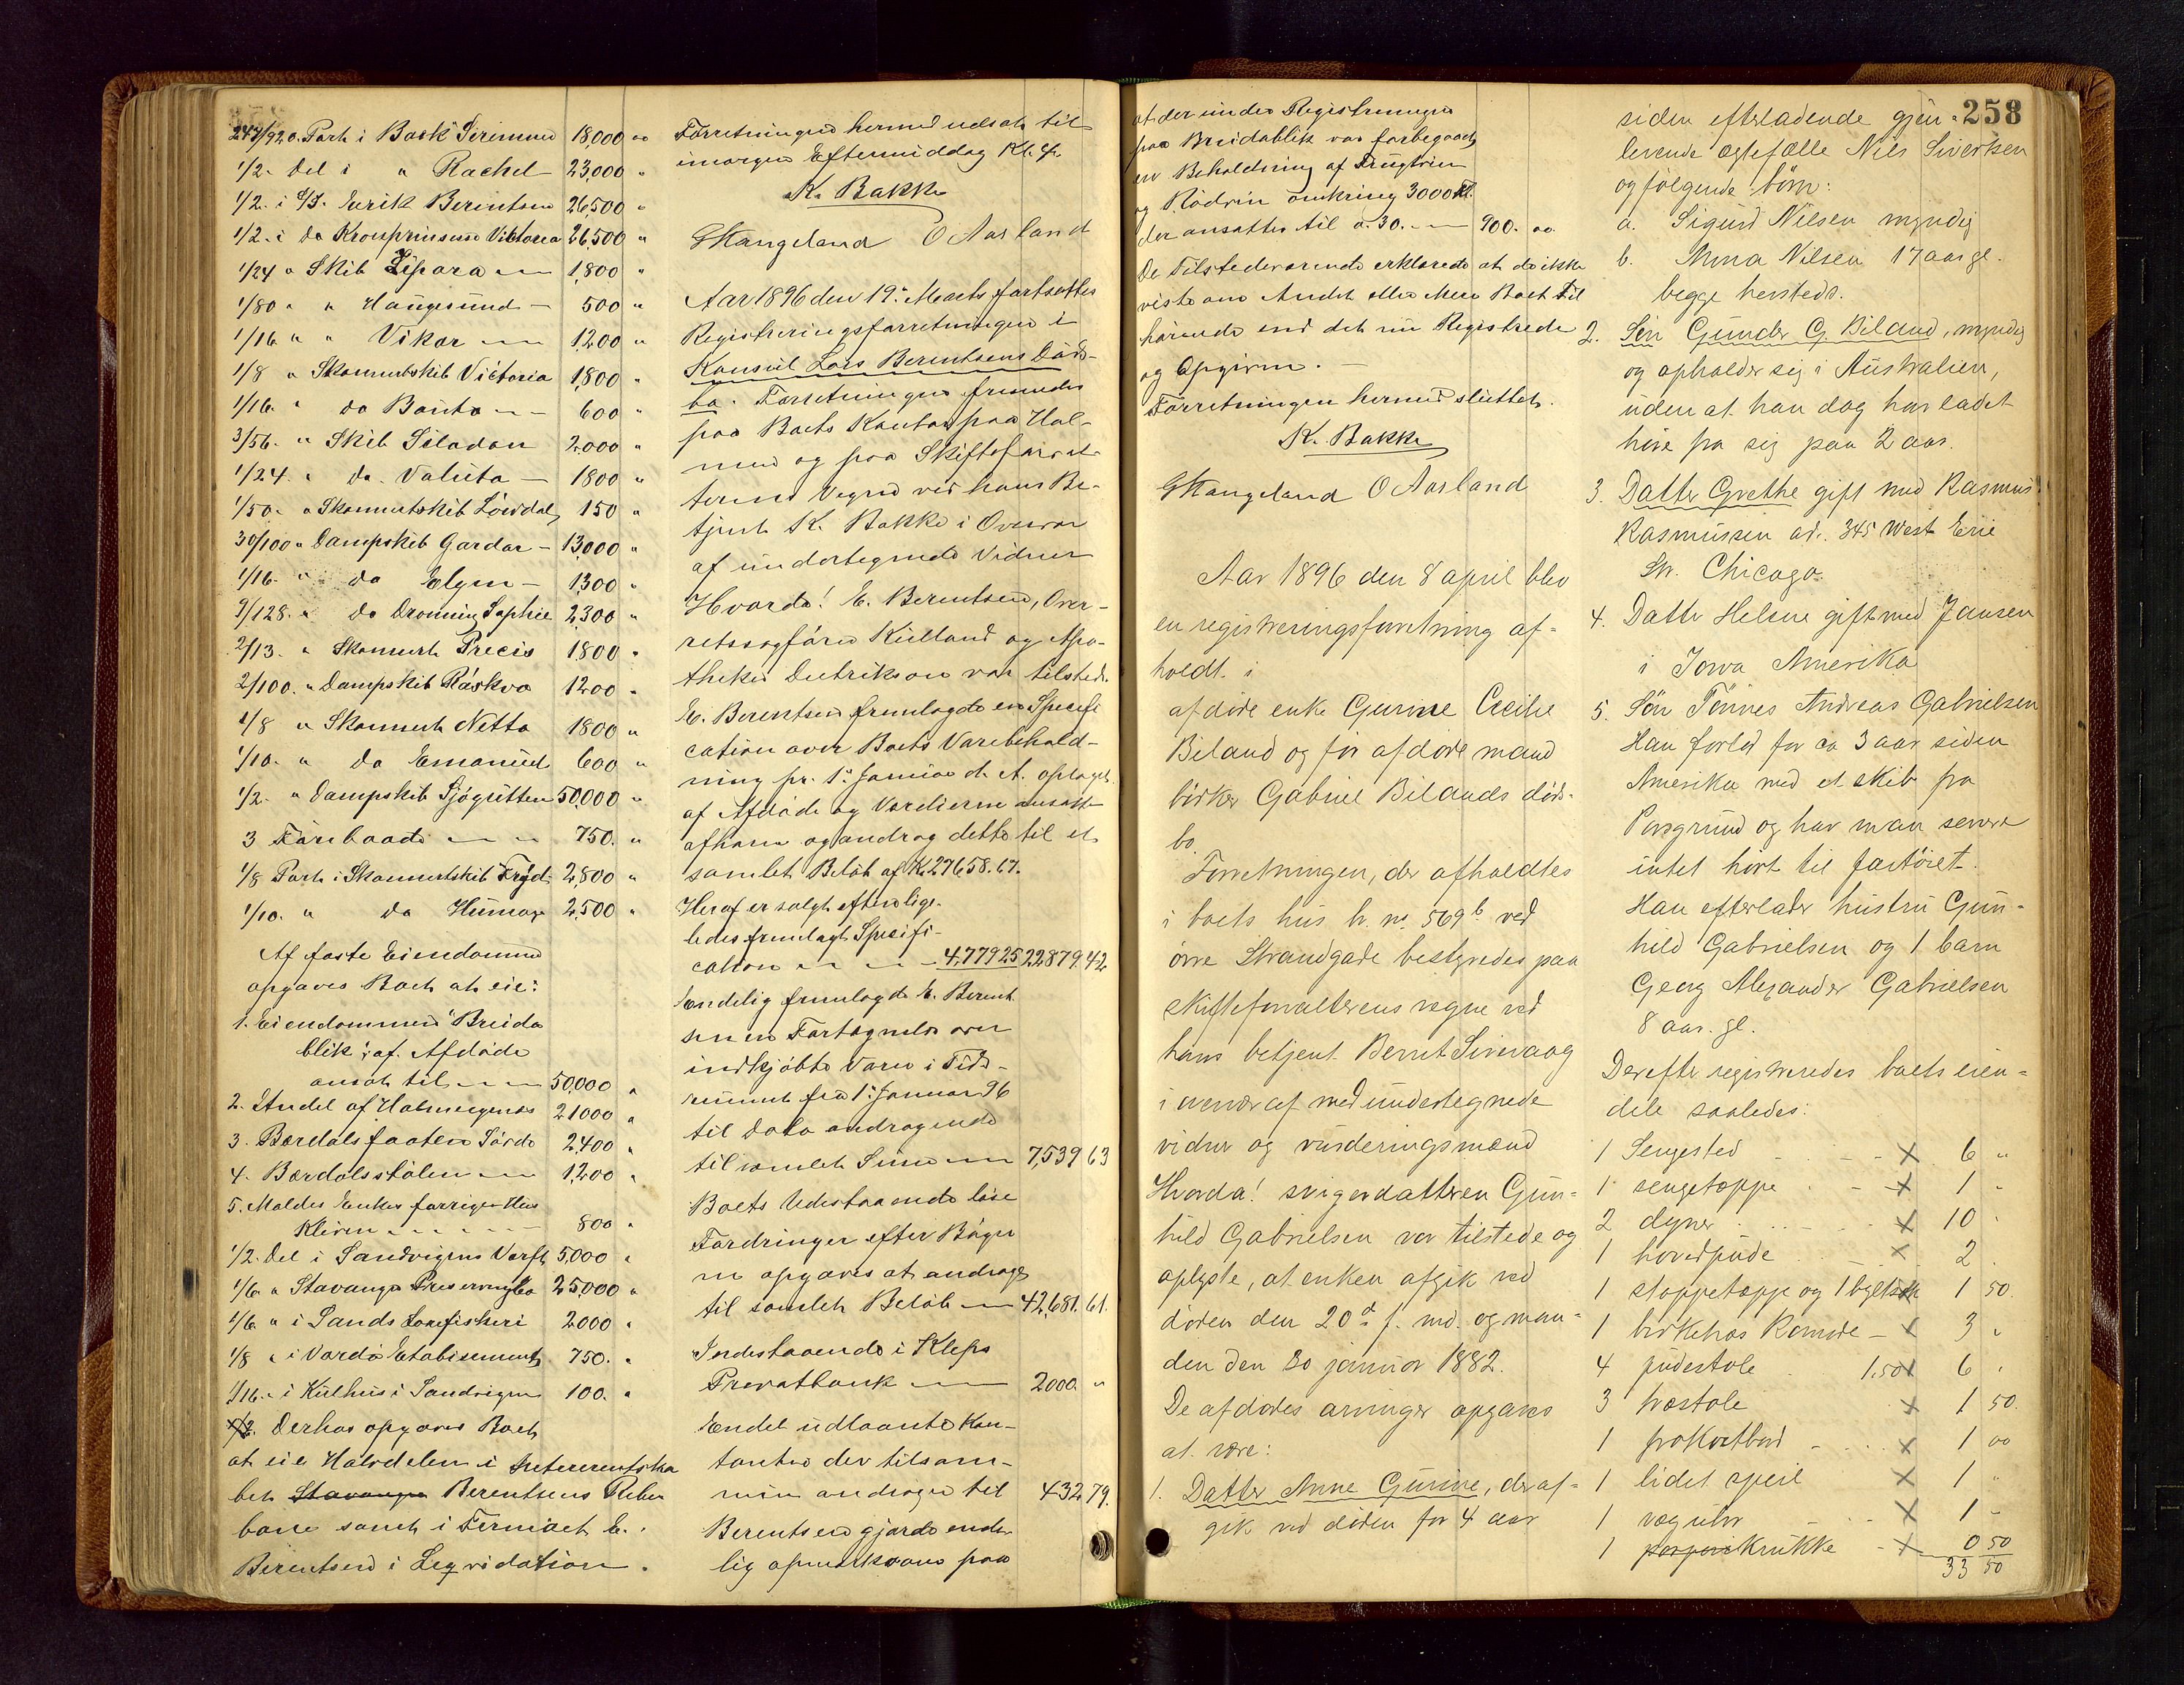 247/920. Part i Bark Serimner 18,000 oo
1/2. Del i " Rachel — 23,000 "
1/2. i S/S. Eerik Berentsen 26,500 "
1/2. i do Kronprinsesse Viktoria 26,500 "
1/24 " Skib Zipora — 1,800 "
1/80 " " Haugesund — 500 "
1/16 " " Vikar — 1,200 "
1/8 " Skonnertskib Victoria 1,800 "
1/16. " do Banto — 600 "
3/56. " Skib Siladon 2,000 "
1/24. " do. Valuta — 1800 "
1/50. " Skonnertskib Lövdal 150 "
30/100 " Dampskib Gardar — 13,000 "
1/16. " do Elgen — 1,300 "
9/128. " do Dronning Sophie 2,300 "
2/13. " Skonnert Precis 1800 "
2/100. " Dampskib Röskva 1200 "
1/8 " Skonnert Netto 1800 "
1/10. " do Emanuel 600 "
1/2. " Dampskib Sjøgutten 50,000 "
3 Förebaade — 750. "
1/8 Part i Skonnertskib Fryd 2,800 "
1/10. " do 2,500 "
Af faste Eiendomme
opgaves Boet at eie:
1. Eiendommen "Breida
blik", af. Afdøde
ansat til — 50,000 "
2. Andel af 21000 "
3. 2,400 "
4. Bærdalsstölen — 1,200 "
5. Maldes Enkes forrige Hus
Kleven — 800 "
1/2. Del i Sandvigens Værft 5,000 "
1/6 " Stavanger Preserving Co 25,000 "
1/6 " i Sands Laxefiskeri 2000 "
1/8 " i Vardø Etablisement 750. "
1/16. " i Kulhus i Sandvigen 100. "
Derhos opgaves Boet
at eie Halvdelen i Interessentska
bet Stavanger Berentsens Reber
bane samt i Firmaet E.
Berentsen i Leqvidation.
Forretningen hermed udsat til
imorgen Eftermiddag Kl. 4.
K. Bakke
GHangeland O Aarland
Aar 1896 den 19. Marts fortsattes
Registreringsforretningen i
Konsul Lars Berentsens Døds-
bo. Forretningen fremmedes
paa Boets Kontor paa Hol-
men og paa Skifteforval-
terens Vegne ved hans Be-
tjent K. Bakke i Overvær
af undertegnede Vidner
Hvorda! E. Berentsen, Over-
retssagfører Kielland og Apo-
theker Diedrikson var tilstede.
E. Berentsen fremlagde en Specifi
cation over Boets Varebehold-
ning pr. 1. Januar d. A. optaget
af Afdøde og Værdierne ansatt
af ham og androg dette til et
samlet Beløb af Kr 27658.67.
Heraf er solgt efter lige-
ledes fremlagt Specifi-
cation — 4,779 25 22879 42
Endelig fremlagde E. Berent
sen en Fortegnelse over
indkjøbte Varer i Tids-
rummet fra 1. Januar 96
til Dato andragende
til samlet Sum — 7,539 63
Boets Udestaaende løse
Fordringer efter Bøger
ne opgaves at andrage
til samlet Beløb — 42,681. 61.
Indestaaende i Kleps
Privatbank — 2000 "
Endel udlaante Kon-
tanter der tilsam-
men andrager til 432 79.
Berentsen gjorde ende-
lig opmerksom paa
at der under Registreringen
paa Breidablik var forbigaaet
en Beholdning af Frugtvin
og Rødvin omkring 3000 Fl.
der ansattes til a. 30. — 900. oo
De Tilstedeværende erklærede at de ikke
viste om Andet eller Mere Boet til
hørende end det nu Registrerede
og Opgivne. —
Forretningen hermed sluttet.
K. Bakke
GHangeland O Aarland
Aar 1896 den 8 april blev
en registreringsforretning af-
holdt i
afdøde enke Gurine Cecilie
Biland og før afdøde mand
bødker Gabriel Bilands døds-
bo.
Forretningen, der afholdtes
i boets hus br. no. 569b ved
øvre Strandgade bestyredes paa
skifteforvalterens vegne ved
hans betjent Bernt Sirevaag
i overvær af medundertegnede
vidner og vurderingsmænd
Hvorda! svigerdatteren Gun-
hild Gabrielsen var tilstede og
oplyste, at enken afgik ved
døden den 20de f. md. og man-
den den 30 januar 1882.
De afdødes arvinger opgaves
at være:
1. Datter Anne Gurine, der af-
gik ved døden for 4 aar
258
siden efterladende gjen-
levende ægtefælle Nils Sivertsen
og følgende børn:
a. Sigurd Nilsen myndig
b. Anna Nilsen 17 aar gl.
begge hersteds.
2. Søn Gunder G. Biland, myndig
og opholder sig i Australien,
uden at han dog har ladet
høre fra sig paa 2 aar.
3. Datter Grethe gift med Rasmus
Rasmussen ad. 345 West Erie
Str. Chicago.
4. Datter Helene gift med Jansen
i Iowa Amerika
5. Søn Tönnes Andreas Gabrielsen
Han forlod for ca 3 aar siden
Amerika med et skib fra
Porsgrund og har man senere
intet hørt til fartøiet.
Han efterlader hustru Gun-
hild Gabrielsen og 1 barn
Georg Alexander Gabrielsen
8 aar. gl.
Derefter registreredes boets eien-
dele saaledes:
1 Sengested x 6 "
1 sengetæppe x 1 "
2 dyner x 10 "
1 hovedpude x 2 "
1 stoppetæppe og 1 x 1 50.
1 birketræs Komode — x 3 "
4 pudestole 1.50 x 6 "
3 træstole x 1 50.
1 x 1 oo
1 lidet speil x 1 "
1 væguhr x 1 "
1 krukke x 0 50
33 50